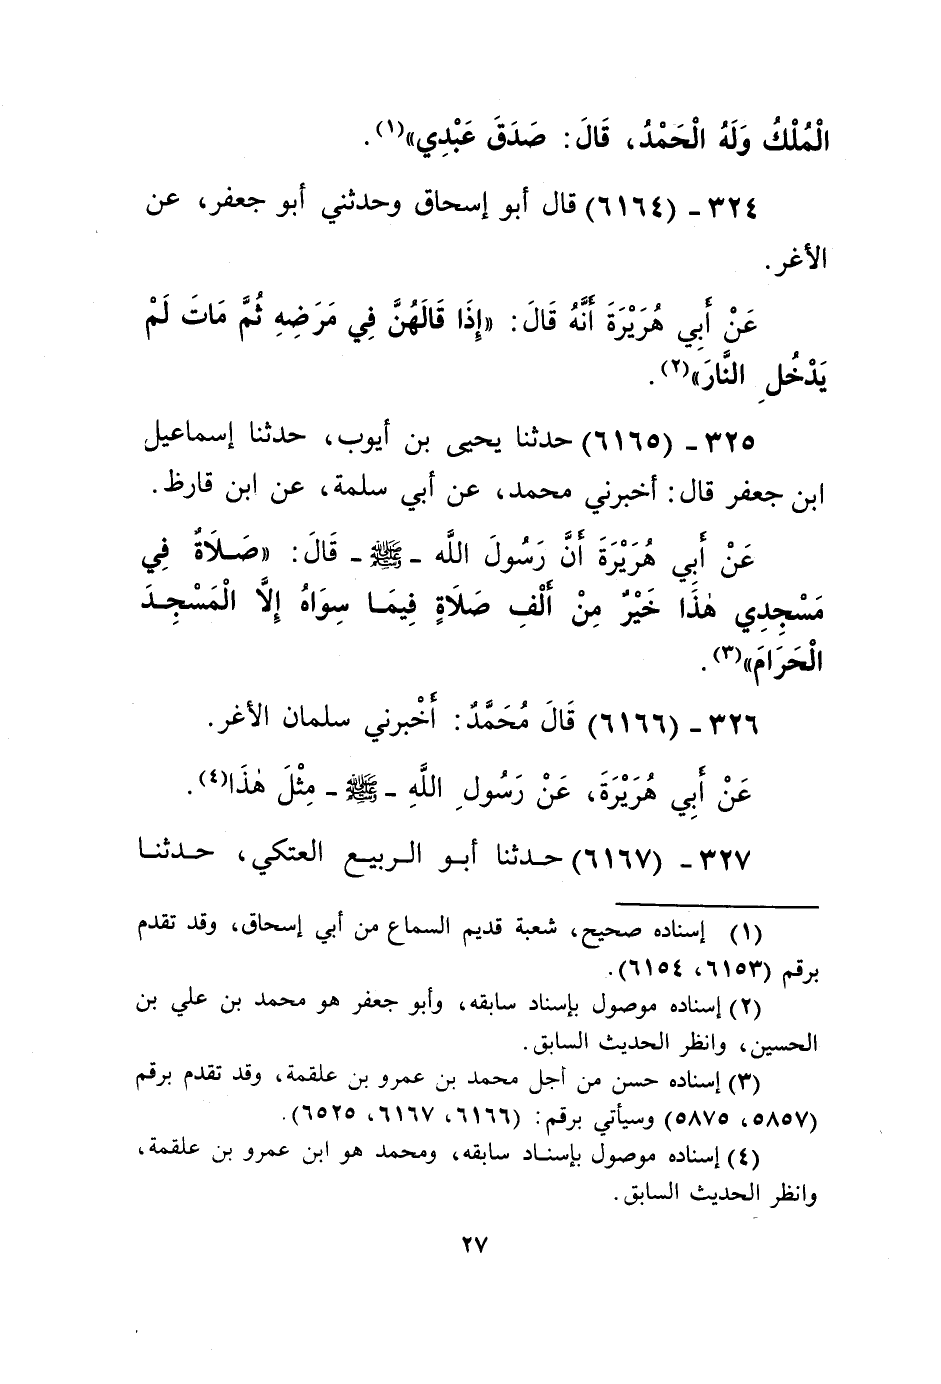 الْمُلْكُ وَلَهُ الْحَمْدُ، قَالَ: صَدَقَ عَبْدِي»(١).
٣٢٤ - (٦١٦٤) قال أبو إسحاق وحدثني أبو جعفر، عن
الأغر.
عَنْ أَبِي هُرَيْرَةَ أَنَّهُ قَالَ: «إِذَا قَالَهُنَّ فِي مَرَضِهِ ثُمَّ مَاتَ لَمْ
يَدْخُلِ النَّارَ»(٢).
٣٢٥ - (٦١٦٥) حدثنا يحيى بن أيوب، حدثنا إسماعيل
ابن جعفر قال: أخبرني محمد، عن أبي سلمة، عن ابن قارظ.
عَنْ أَبِي هُرَيْرَةَ أَنَّ رَسُولَ اللَّه - ﷺ - قَالَ: «صَلَاةٌ فِي
مَسْجِدِي هٰذَا خَيْرٌ مِنْ أَلْفِ صَلَاةٍ فِيمَا سِوَاهُ إِلَّا الْمَسْجِدَ
الْحَرَامَ»(٣).
٣٢٦ - (٦١٦٦) قَالَ مُحَمَّدٌ: أَخْبرني سلمان الأغر.
عَنْ أَبِي هُرَيْرَةَ، عَنْ رَسُولِ اللَّهِ - ﷺ - مِثْلَ هٰذَا(٤).
٣٢٧ - (٦١٦٧) حدثنا أبو الربيع العتكي، حدثنا
(١) إسناده صحيح، شعبة قديم السماع من أبي إسحاق، وقد تقدم
برقم (٦١٥٣، ٦١٥٤).
(٢) إسناده موصول بإسناد سابقه، وأبو جعفر هو محمد بن علي بن
الحسين، وانظر الحديث السابق.
(٣) إسناده حسن من أجل محمد بن عمرو بن علقمة، وقد تقدم برقم
(٥٨٥٧، ٥٨٧٥) وسيأتي برقم: (٦١٦٦، ٦١٦٧، ٦٥٢٥).
(٤) إسناده موصول بإسناد سابقه، ومحمد هو ابن عمرو بن علقمة،
وانظر الحديث السابق.
٢٧